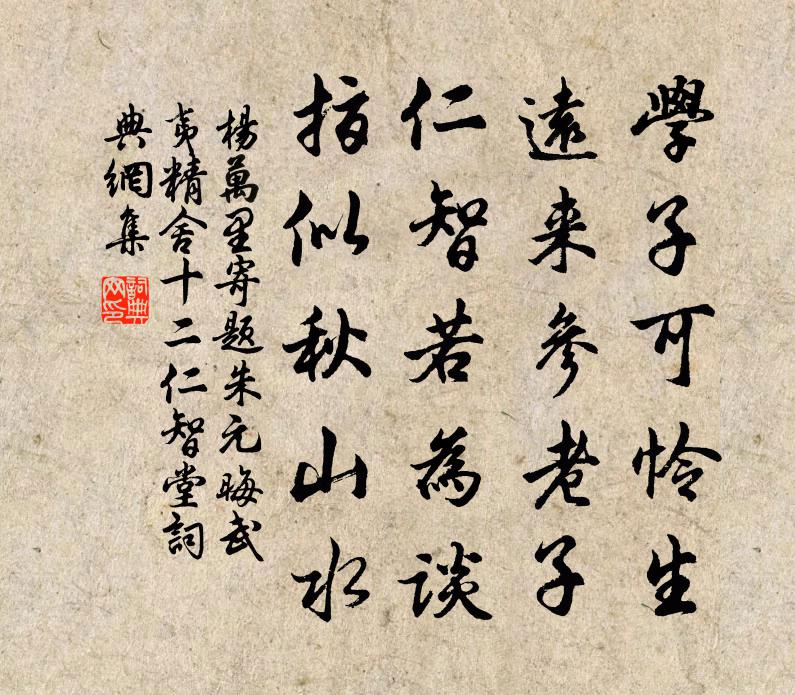 學子可怜生
遠来參老子
仁智若為談
指似秋山水
楊萬里寄题朱元晦武
夷精舍十二仁智堂詞
典網集
詞典網印